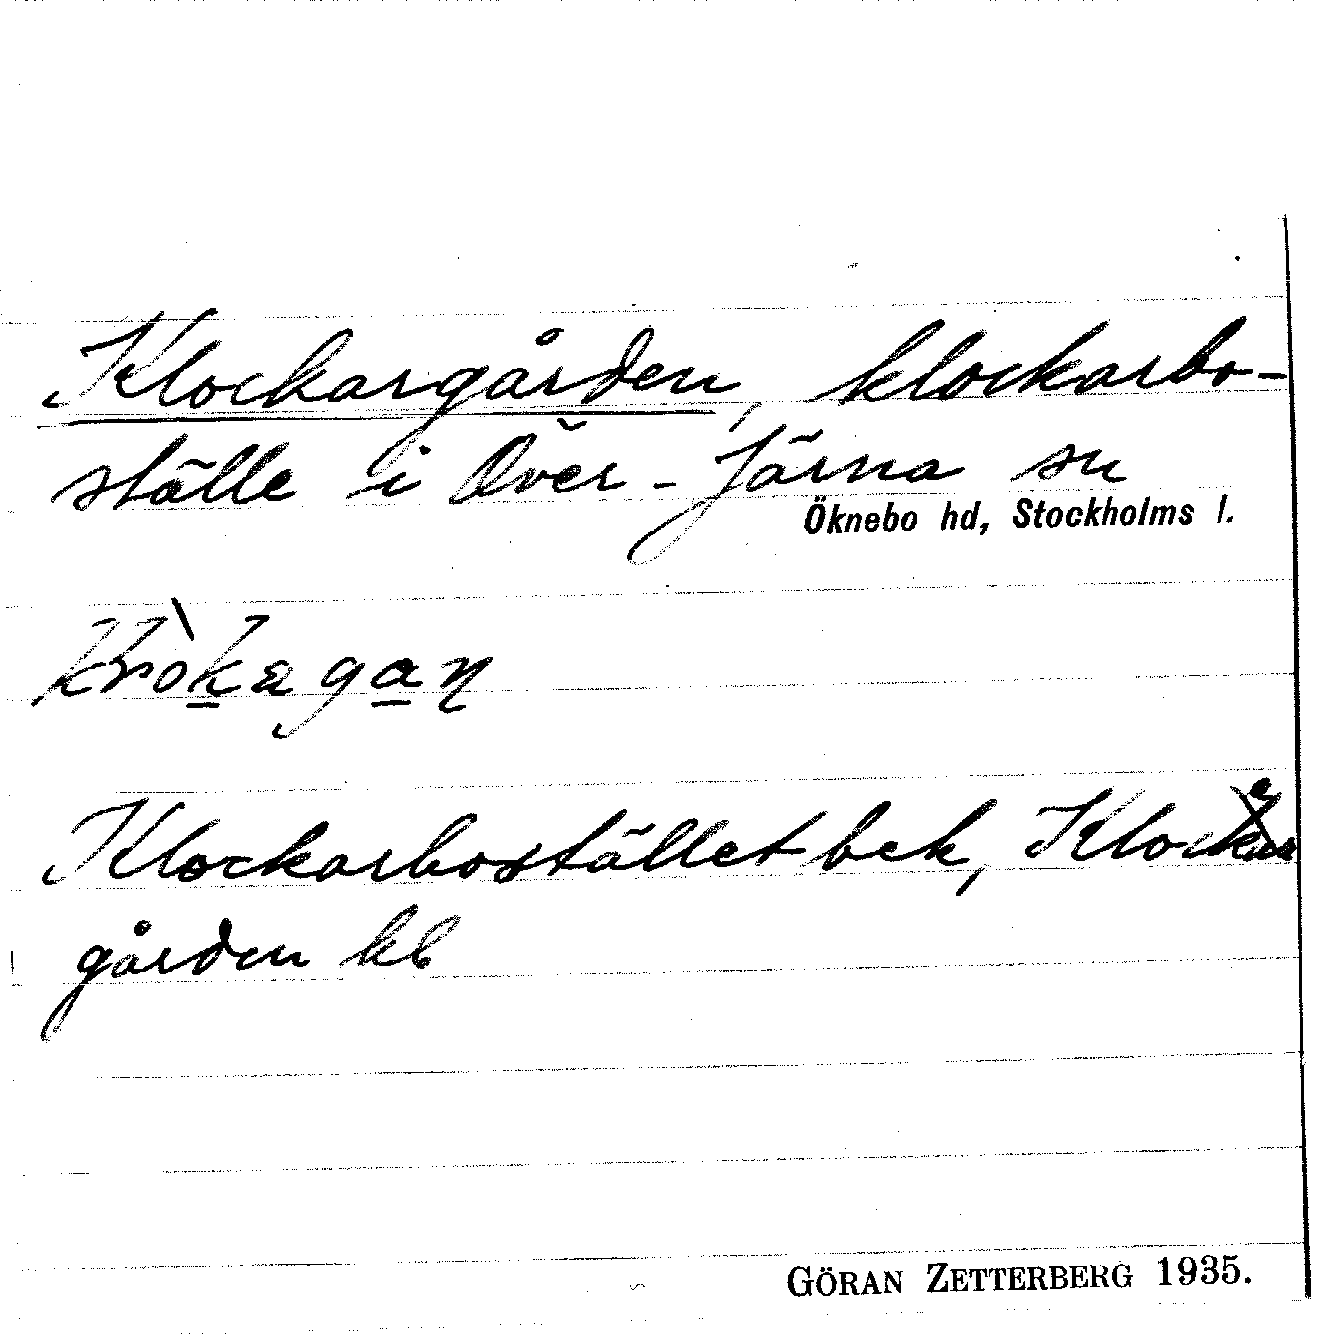 Klockargården, klockarbo-
ställe i Över-Järna sn
Öknebo hd, Stockholms l.
Klockarbostället bek, Klockar
gården kb
GÖRAN ZETTERBERG 1935.